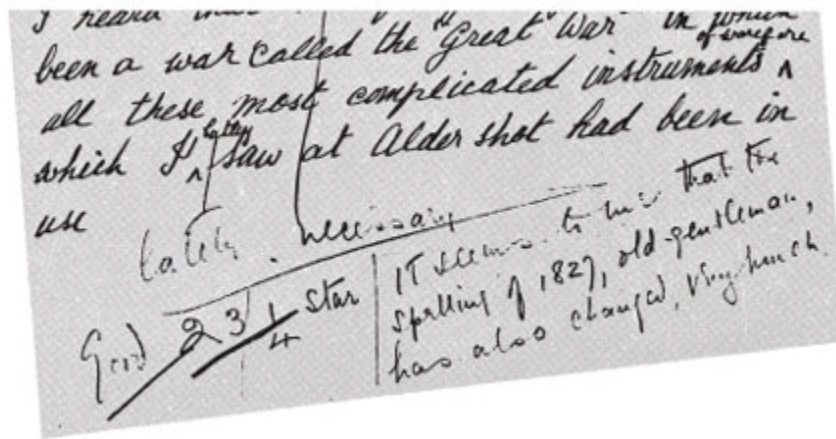 I heard
been a war called the "Great War" in which
of warfare
all these most complicated instruments ^
which I ^ saw at Aldershot had been in
use
lately . necessary
Good 23 1/4 Star
It seems to me that the
spelling of 1827, old gentleman,
has also changed, very much.